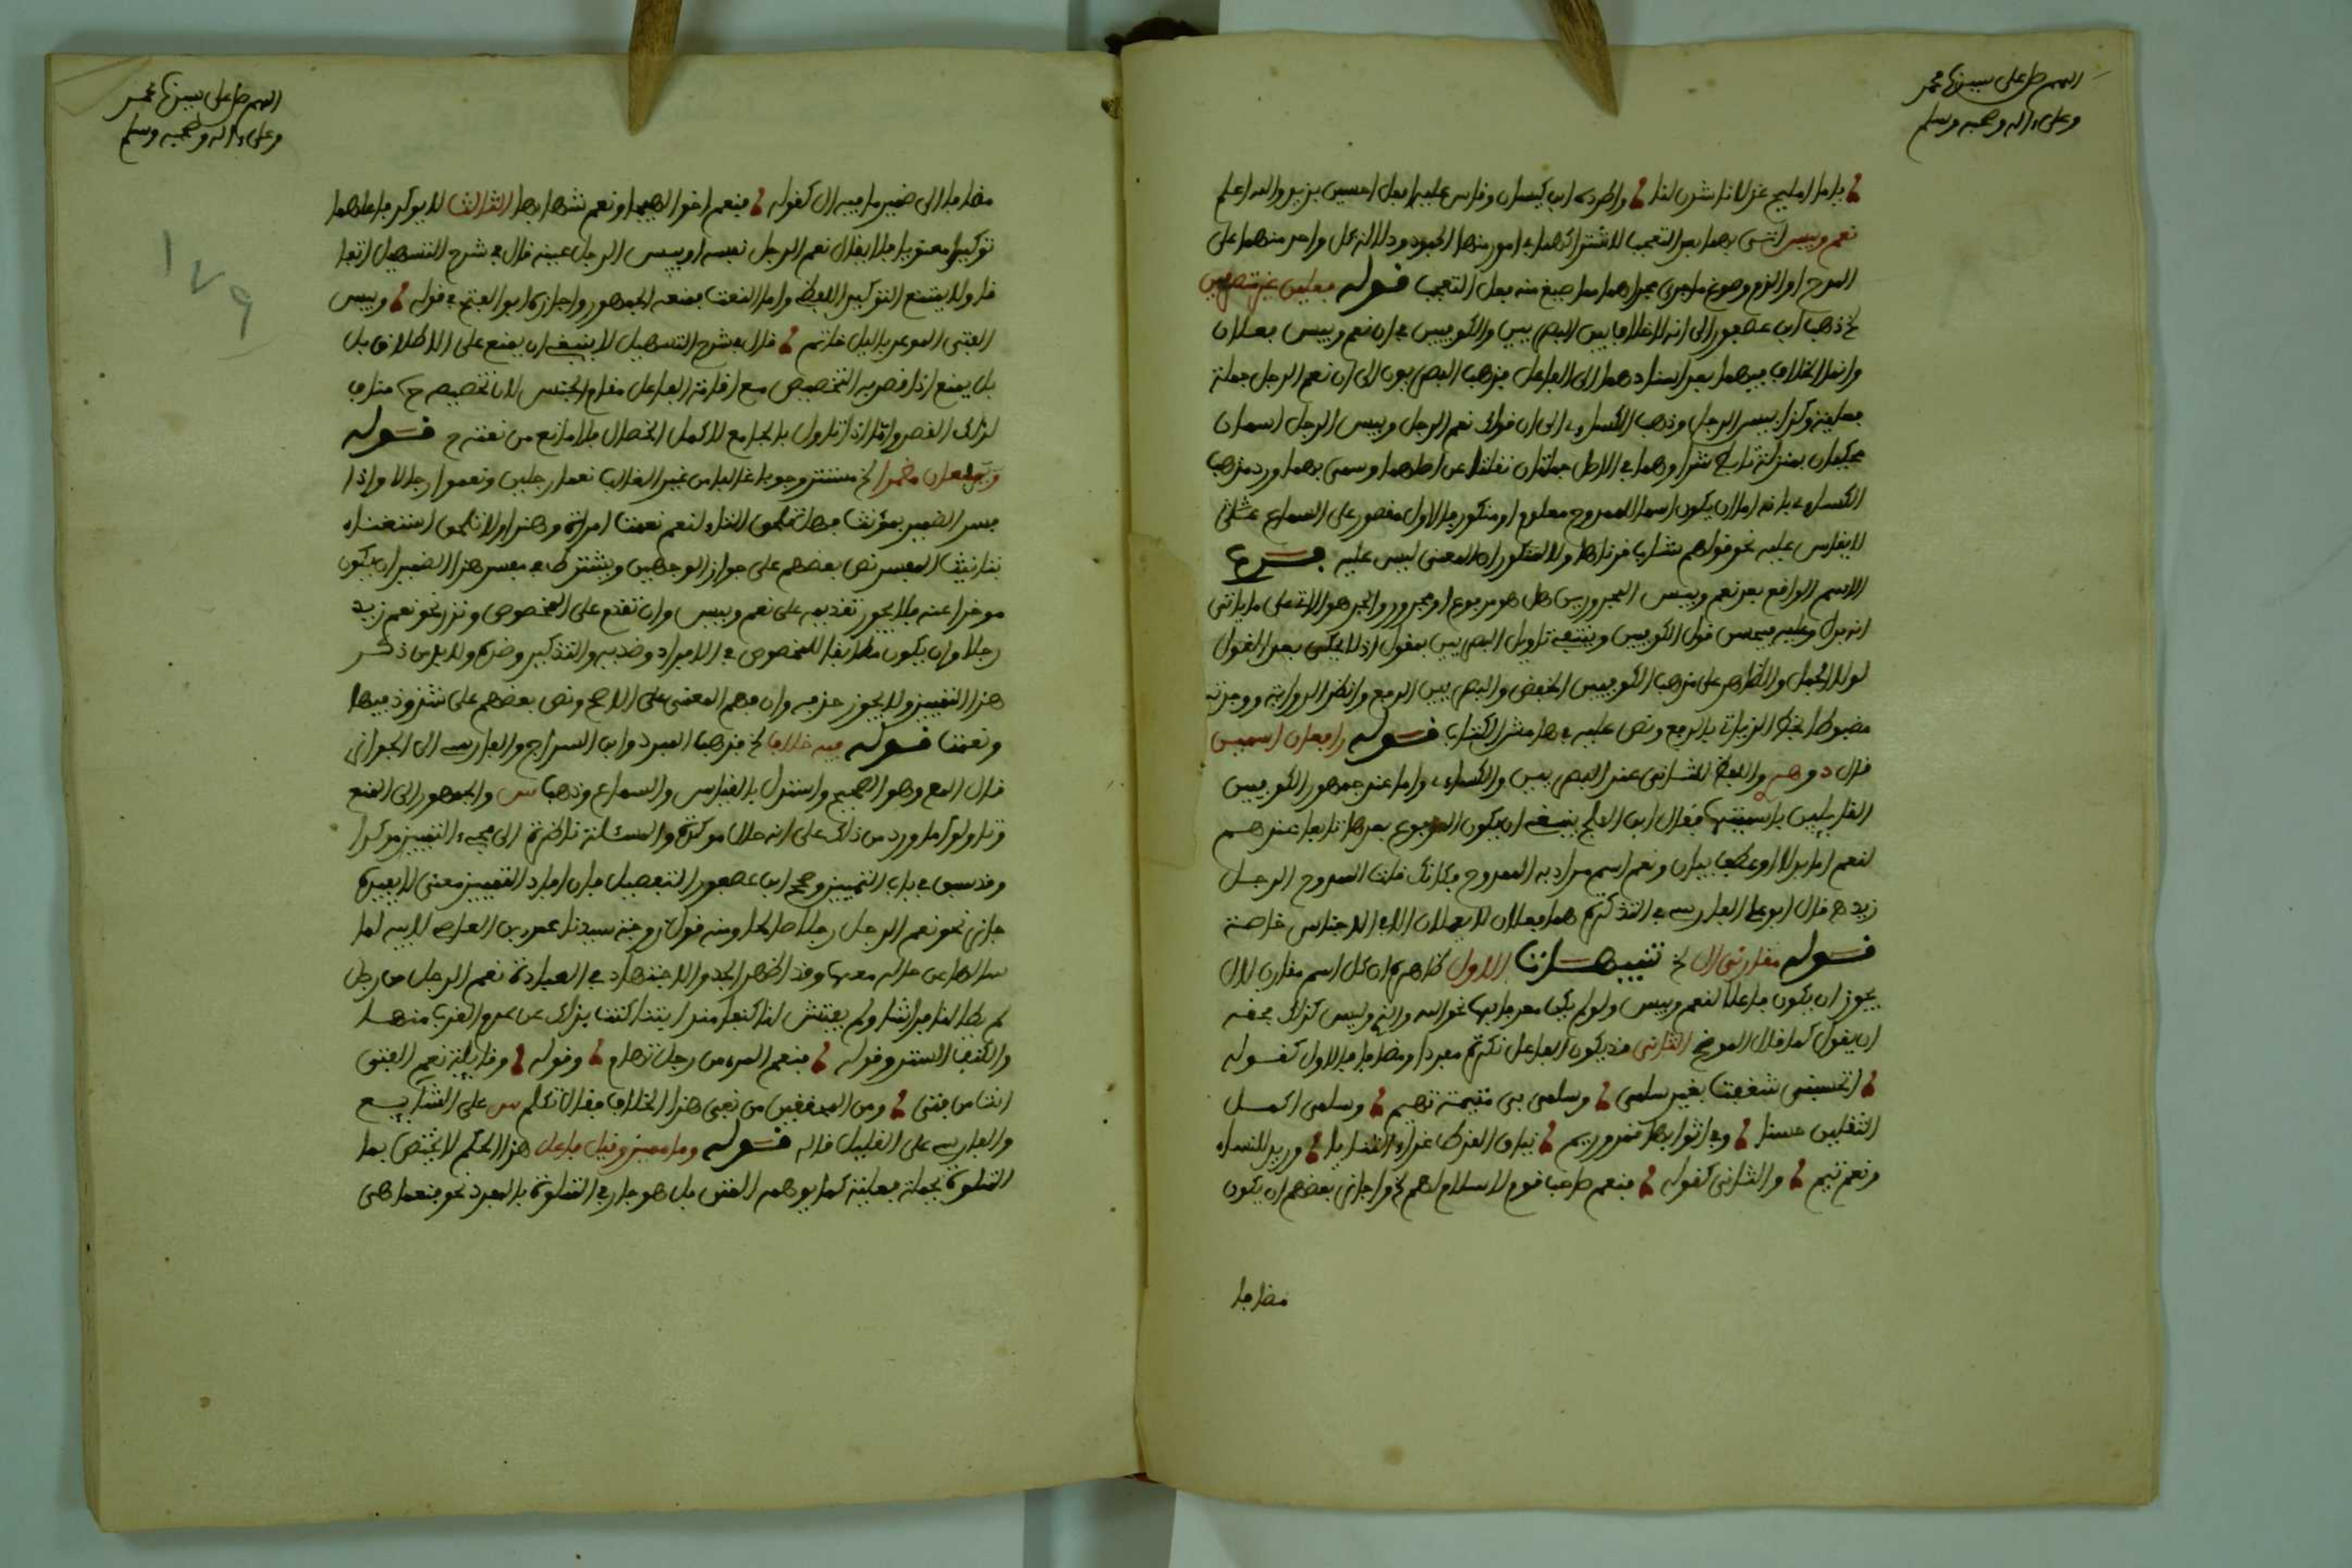 اللهم صل على سيدنا محمد
وعلى ءاله وصحبه وسلم
يا ما اميلح غزلانا شدن لنا واطرده ابن كيسان وقاس عليه افعل احسن بزيد والله اعلم
نعم وبيس اتى بهما بعد التعجب لاشتراكهما في امور منها الجمود ودلالة كل واحد منهما على
المدح او الذم وصوغ ما جرى مجراهما مما صيغ منه فعل التعجب قوله فعلان غير متصرفين
الخ ذهب ابن عصفور الى انه لا خلاف بين البصريين والكوفيين في ان نعم وبيس فعلان
وانما الخلاف فيهما بعد اسنادهما الى الفاعل فذهب البصريون الى ان نعم الرجل جملة
فعلية وكذا بيس الرجل وذهب الكساءي الى ان قولك نعم الرجل وبيس الرجل اسمان
محكيان بمنزلة تابط شرا وهما في الاصل جملتان نقلتا عن اصلهما وسمي بهما ورد مذهب
الكساءي بانه اما ان يكون اسما للممدوح معلوم او منكور فالاول مقصور على السماع
لا يقاس عليه نحو قولهم شاب قرناها ولا لمنكور اذ المعنى ليس عليه فرع
الاسم الواقع بعد نعم وبيس المجرورين هل هو مرفوع او مجرور والجر هو الاتي على ما ياتي
انه بدل وعليه قول الكوفيين تاويل البصريين بمقول اذ لا يحكى بعد القول
لولا الجمل والظاهر على مذهب الكوفيين الخفض والبصريين الرفع وانظر الرواية ووجدته
مضبوطا بخط الزيات بالرفع ونص عليه في هامش الكتاب قوله رافعان اسمين
قال د وهـ واللفظ للثاني عند البصريين والكساءي واما عند جمهور الكوفيين
القايلين باسميتها فقال ابن العلج ينبغي ان يكون المرفوع بعدها تابعا عندهم
لنعم اما بدلا او عطف بيان ونعم اسم مراد به الممدوح فكانك قلت الممدوح الرجل
زيد هـ قال ابو علي الفارسي في التذكرة هما فعلان لا يعملان الا في الاجناس خاصة
قوله مقارني ال الخ تنبيهات الاول ظاهره ان كل اسم مقارن لال
يجوز ان يكون فاعلا لنعم وبيس ولو لم يكن معرفا بها نحو الله والذي وليس كذلك فحقه
ان يقول كما قال الموضح الثاني قد يكون الفاعل نكرة مفردا ومضافا فالاول كقوله
اتحسبني شغفت بغير سلمى وسلمى بي متيمة تهيم وسلمى اكمل
الثقلين حسنا وفي اثوابها قمر وريم نياف القرط غراء الثنايا وريد للنساء
ونعم نيم والثاني كقوله فنعم صاحب قوم لا سلاح لهم الخ واجاز بعضهم ان يكون
مضافا
اللهم صل على سيدنا محمد
وعلى ءاله وصحبه وسلم
١٧٩
مضافا الى ضمير ما فيه ال كقوله فنعم اخو الهيجا ونعم شهابها الثالث لا يوكد فاعلهما
توكيدا معنويا فلا يقال نعم الرجل نفسه او بيس الرجل عينه قال في شرح التسهيل اتفاقا
قال ولا يمتنع التوكيد اللفظي واما النعت فمنعه الجمهور واجازه ابو الفتح في قوله وبيس
الفتى المدعو بالليل حاتم قال في شرح التسهيل لا ينبغي ان يمنع على الاطلاق بل
بل يمنع اذا قصد به التخصيص مع اقامة الفاعل مقام الجنس لان تخصيصه ح مناف
لذلك القصد واما اذا تاول بالجامع لاكمل الخصال فلا مانع من نعته ح قوله
ويرفعان مضمرا الخ مستتر وجوبا غالبا من غير الغالب نعما رجلين ونعموا رجالا واذا
فسر الضمير بمؤنث فهل تلحق التاء لنعم نعمت امراة وهند او لا تلحق استغناء
بتانيث المفسر نص بعضهم على جواز الوجهين ويشترط في مفسر هذا الضمير ان يكون
موخرا عنه فلا يجوز تقديمه على نعم وبيس وان تقدم على المخصوص وندر نحو نعم زيد
رجلا وان يكون مطابقا للمخصوص في الافراد وضديه والتذكير وضده ولا بد من ذكر
هذا التمييز ولا يجوز حذفه وان فهم المعنى على الاصح ونص بعضهم على شذوذ فبها
ونعمت قوله فيه خلاف الخ فذهب المبرد وابن السراج والفارسي الى الجواز
قال المص وهو الصحيح واستدل بالقياس والسماع وذهب س والجمهور الى المنع
وتاولوا ما ورد من ذلك على انه حال موكدة والمسئلة ناظرة الى مجيء التمييز موكدا
وقد سبق في باب التمييز وصحح ابن عصفور التفصيل فان افاد التمييز معنى لا يفيده
جاز نحو نعم الرجل رجلا صالحا ومنه قول زوجة سيدنا عمرو بن العاصي لابيه لما
سالها عن حاله معها وقد اظهر الجد والاجتهاد في العبادة نعم الرجل من رجل
لم يطا لنا فراشا ولم يفتش لنا كنفا منذ اتينا كنت بذلك عن عدم القرب منها
والكنف الستر وقوله فنعم المرء من رجل تهام وقوله وقايلة نعم الفتى
انت من فتى ومن المحققين من نفى هذا الخلاف فقال تكلم س على الشايع
والفارسي على القليل قاله قوله وما مميز وقيل فاعل هذا الحكم لا يختص بما
المتلوة بجملة فعلية كما يوهمه المتن بل هو جار في المتلوة بالمفرد نحو فنعما هي